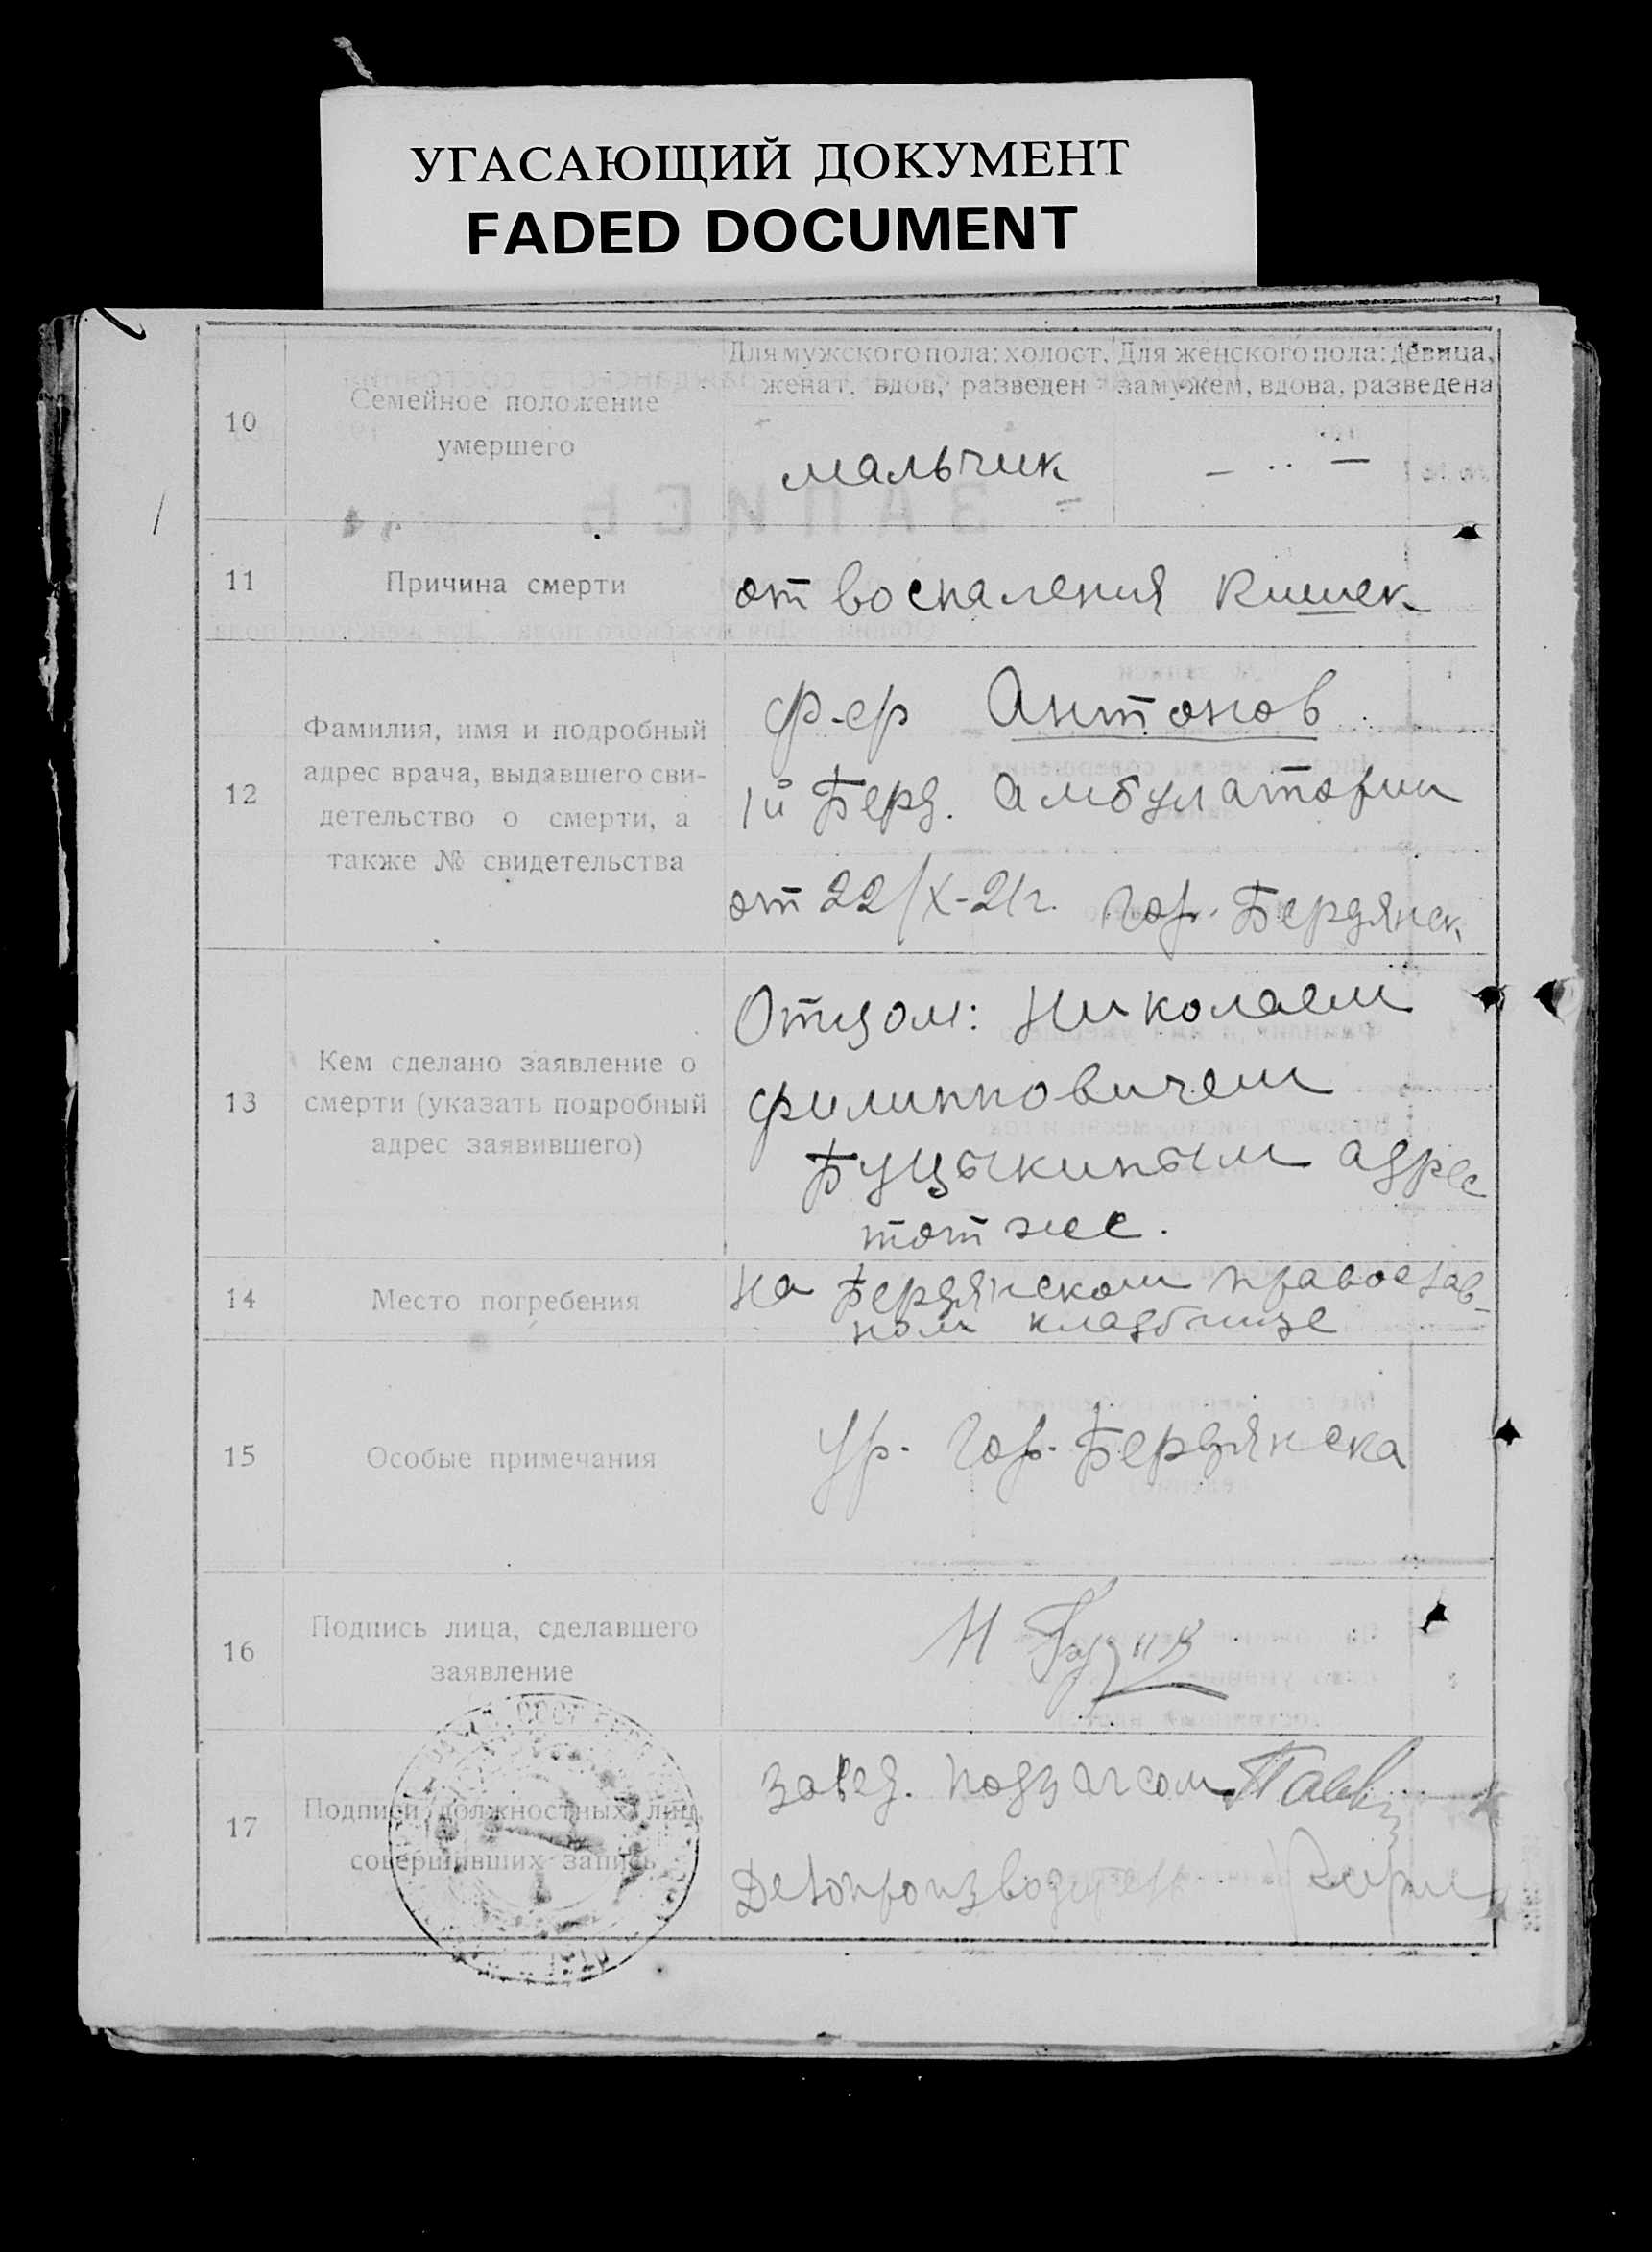 УГАСАЮЩИЙ ДОКУМЕНТ
FADED DOCUMENT
10
Семейное положение
умершего
Для мужского пола: холост,
женат, вдов, разведен
Для женского пола: девица,
замужем, вдова, разведена
мальчик
— ·· —
11
Причина смерти
от воспаления кишек
12
Фамилия, имя и подробный
адрес врача, выдавшего сви-
детельство о смерти, а
также № свидетельства
ф-ер Антонов
1й Берд. Амбулатории
от 22/X-21г. гор. Бердянск
13
Кем сделано заявление о
смерти (указать подробный
адрес заявившего)
Отцом: Николаем
Филипповичем
Буцыкиным адрес
тот же.
14
Место погребения
на Бердянском православ-
ном кладбище
15
Особые примечания
Ур. гор. Бердянска
16
Подпись лица, сделавшего
заявление
Н
17
Подписи должностных лиц,
совершивших запись
Завед. подзагсом
Делопроизводитель
ЗАПИСЬ